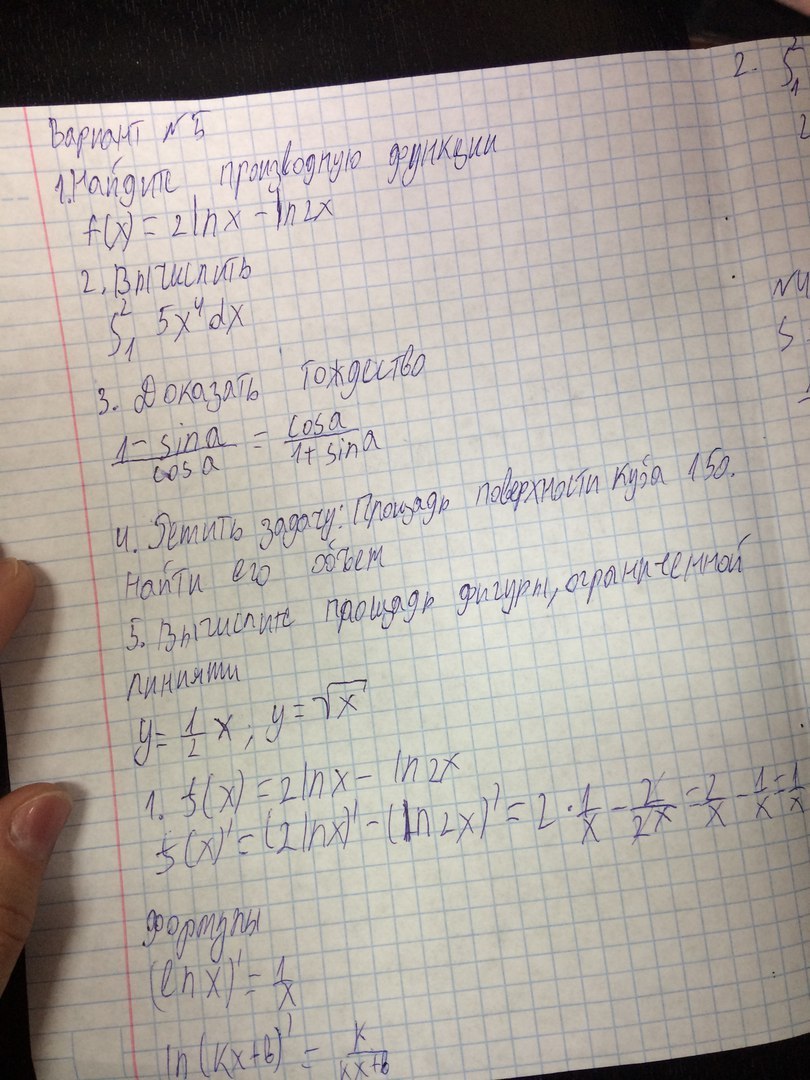 Вариант №5
1.Найдите производную функции
f(x) = 2lnx - ln2x
2. Вычислить
∫₁² 5x⁴dx
3. Доказать тождество
(1 - sina)/(cosa) = (cosa)/(1 + sina)
4. Решить задачу: Площадь поверхности куба 150.
Найти его объем
5. Вычислите площадь фигуры, ограниченной
линиями
y = 1/2 x ; y = √x
1. f(x) = 2lnx - ln2x
f(x)' = (2lnx)' - (ln2x)' = 2 · 1/x - 2/2x = 2/x - 1/x = 1/x
Формулы
(ln x)' = 1/x
ln(kx+b)' = k/(kx+b)
2. ∫₁²
2
№4
S